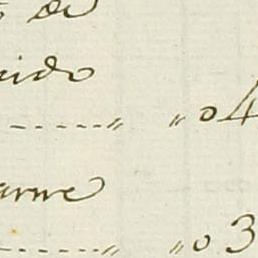 de
cido
-------„ „04
arne
-------„ „03